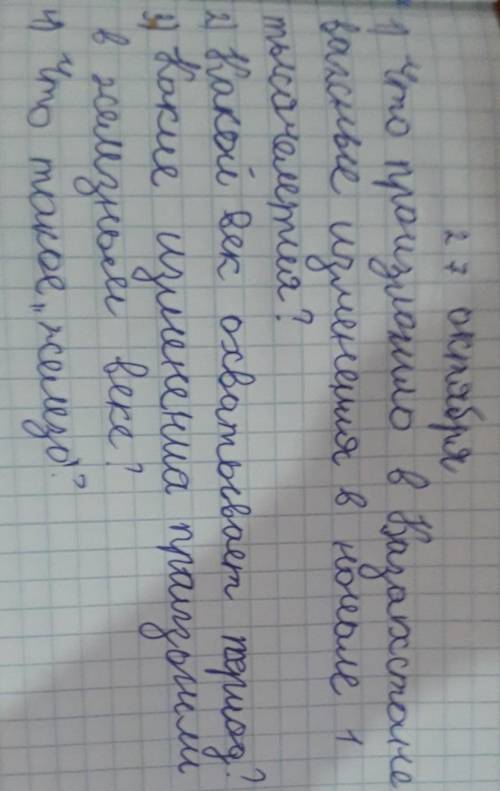 27 октября
1) Что произлошло в Казахстане
важные изменения в начале 1
тысячелетия?
2) Какой век охватывает период?
3) Какие изменения праизошли
в железнем веке?
4) Что такое „железо"?